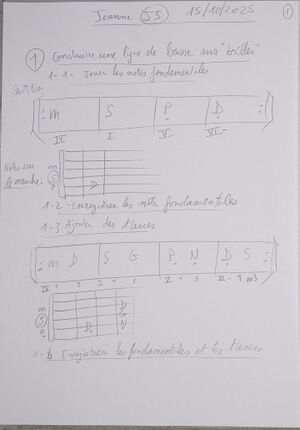 Jeanne S5 15/10/2025 1
1 Construire une ligne de basse sur "briller"
1-1- Jouer les notes fondamentales
Partition
m S P D
IV I V VI-
Notes sur
le manche
m
S
P
D
1-2-Enregistrer les notes fondamentales
1-3 Ajouter des tierces
m D S G P N D S
IV 1 3 I 1 3 V 1 3 VI-1 m3
m
S
P
D
G
D N
Enregistrer les fondamentales et les tierces